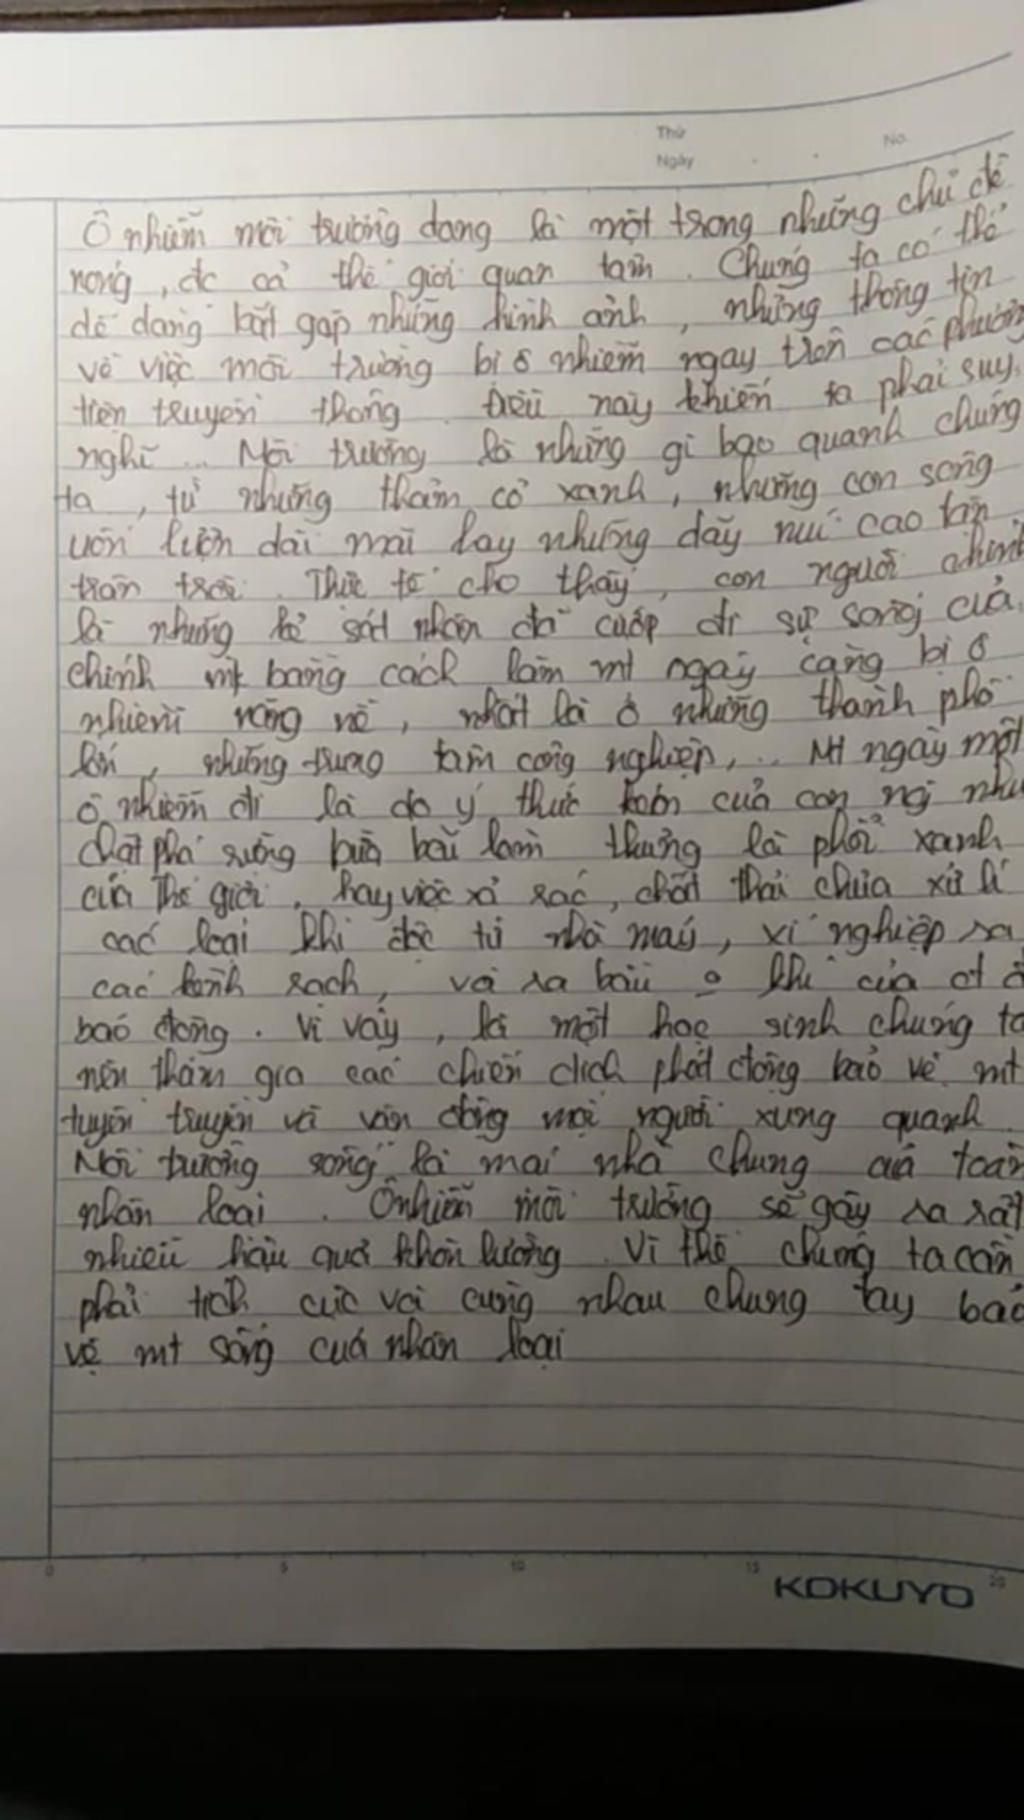 Thứ
No.
Ngày
Ô nhiễm môi trường đang là một trong những chủ đề
nóng, đc cả thế giới quan tâm. Chúng ta có thể
dễ dàng bắt gặp những hình ảnh, những thông tin
về việc môi trường bị ô nhiễm ngay trên các phương
tiện truyền thông. Điều này khiến ta phải suy
nghĩ... Môi trường là những gì bao quanh chúng
ta, từ những thảm cỏ xanh, những con sông
uốn lượn dài mãi hay những dãy núi cao lớn
trần trời. Thực tế cho thấy, con người chính
là những kẻ sát nhân đã cướp đi sự sống của
chính mk bằng cách làm mt ngày càng bị ô
nhiễm nặng nề, nhất là ở những thành phố
lớn, những trung tâm công nghiệp,... Mt ngày một
ô nhiễm đi là do ý thức kém của con ng như
chặt phá rừng bừa bãi làm thủng lá phổi xanh
của Thế giới, hay việc xả rác, chất thải chưa xử lí
các loại khí độc từ nhà máy, xí nghiệp ra
các kênh rạch, và ra bầu khí của
báo động. Vì vậy, là một học sinh chúng ta
nên tham gia các chiến dịch phát động bảo vệ mt
tuyên truyền và vận động mọi người xung quanh.
Môi trường sống là mái nhà chung của toàn
nhân loại. Ô nhiễm môi trường sẽ gây ra rất
nhiều hậu quả khôn lường. Vì thế chúng ta cần
phải tích cực và cùng nhau chung tay bảo
vệ mt sống của nhân loại
0 5 10 15 20
KOKUYO